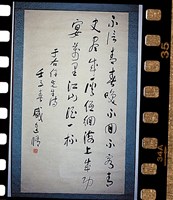 不信青春喚不回不容青
史盡成灰低徊海上成功
宴萬里江山酒一杯
于右任先生詩
35
34A